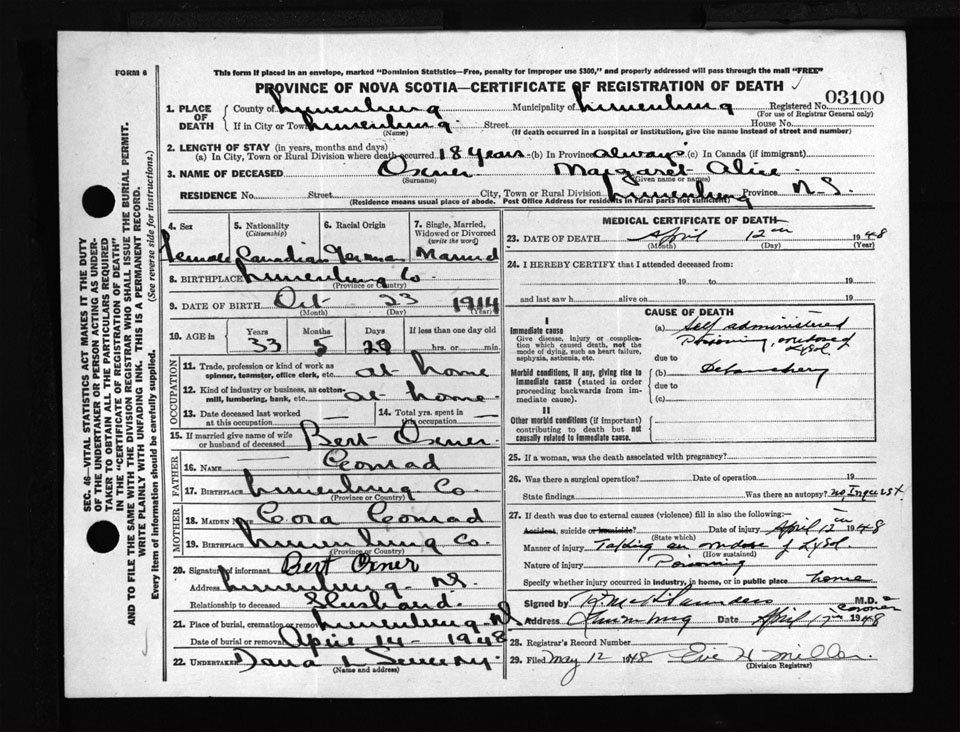 FORM 6
This form if placed in an envelope, marked "Dominion Statistics—Free, penalty for improper use $300," and properly addressed will pass through the mail "FREE"
PROVINCE OF NOVA SCOTIA—CERTIFICATE OF REGISTRATION OF DEATH
03100
1. PLACE OF DEATH
County of Lunenburg Municipality of Lunenburg Registered No.
(For use of Registrar General only)
If in City or Town Lunenburg Street House No.
(Name) (If death occurred in a hospital or institution, give the name instead of street and number)
2. LENGTH OF STAY (in years, months and days)
(a) In City, Town or Rural Division where death occurred 18 years (b) In Province always (c) In Canada (if immigrant)
3. NAME OF DECEASED Oxner Margaret Alice
(Surname) (Given name or names)
RESIDENCE No. Street City, Town or Rural Division Lunenburg Province N.S.
(Residence means usual place of abode. Post Office Address for residents in rural parts not sufficient)
SEC. 46—VITAL STATISTICS ACT MAKES IT THE DUTY
OF THE UNDERTAKER OR PERSON ACTING AS UNDER-
TAKER TO OBTAIN ALL THE PARTICULARS REQUIRED
IN THE "CERTIFICATE OF REGISTRATION OF DEATH"
AND TO FILE THE SAME WITH THE DIVISION REGISTRAR WHO SHALL ISSUE THE BURIAL PERMIT.
WRITE PLAINLY WITH UNFADING INK. THIS IS A PERMANENT RECORD.
Every item of information should be carefully supplied. (See reverse side for instructions.)
4. Sex 5. Nationality (Citizenship) 6. Racial Origin 7. Single, Married, Widowed or Divorced (write the word)
Female Canadian German Married
8. BIRTHPLACE Lunenburg Co
(Province or Country)
9. DATE OF BIRTH Oct 23 1914
(Month) (Day) (Year)
10. AGE in Years Months Days If less than one day old
33 5 20 hrs. or min.
OCCUPATION
11. Trade, profession or kind of work as spinner, teamster, office clerk, etc. at home
12. Kind of industry or business, as cotton-mill, lumbering, bank, etc. at home
13. Date deceased last worked at this occupation 14. Total yrs. spent in this occupation
15. If married give name of wife or husband of deceased Bert Oxner
FATHER
16. NAME Conrad
17. BIRTHPLACE Lunenburg Co
(Province or Country)
MOTHER
18. MAIDEN NAME Cora Conrad
19. BIRTHPLACE Lunenburg Co.
(Province or Country)
20. Signature of informant Bert Oxner
Address Lunenburg N.S.
Relationship to deceased Husband.
21. Place of burial, cremation or removal Lunenburg N.S
Date of burial or removal April 14 - 1948
22. UNDERTAKER Dana L Sweeny.
(Name and address)
MEDICAL CERTIFICATE OF DEATH
23. DATE OF DEATH April 12th 1948
(Month) (Day) (Year)
24. I HEREBY CERTIFY that I attended deceased from:
19 to 19
and last saw h alive on 19
CAUSE OF DEATH
I
Immediate cause
Give disease, injury or complication which caused death, not the mode of dying, such as heart failure, asphyxia, asthenia, etc.
(a) Self administered
Poisoning, overdose of
Lysol
due to
Morbid conditions, if any, giving rise to immediate cause (stated in order proceeding backwards from immediate cause).
(b) Debauchery
due to
(c)
II
Other morbid conditions (if important) contributing to death but not causally related to immediate cause.
25. If a woman, was the death associated with pregnancy?
26. Was there a surgical operation? Date of operation 19
State findings Was there an autopsy? no, Inquest
27. If death was due to external causes (violence) fill in also the following:—
Accident, suicide or homicide? Date of injury April 12th 1948
(State which)
Manner of injury Taking an overdose of Lysol.
(How sustained)
Nature of injury Poisoning
Specify whether injury occurred in industry, in home, or in public place home
Signed by M.D.
Coroner
Address Lunenburg Date April 1948
28. Registrar's Record Number
29. Filed May 12 1948
(Division Registrar)